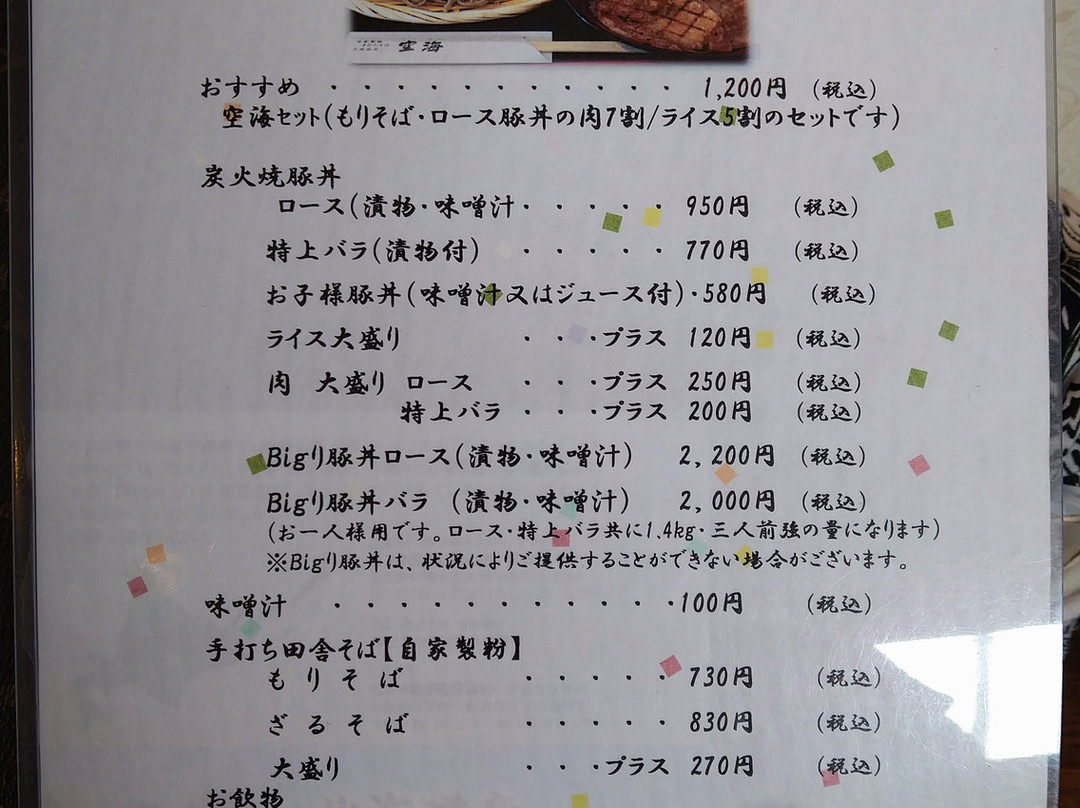 空海
おすすめ ・・・・・・・・・・・ 1,200円 (税込)
空海セット(もりそば・ロース豚丼の肉7割/ライス5割のセットです)
炭火焼豚丼
ロース(漬物・味噌汁・・・・・ 950円 (税込)
特上バラ(漬物付) ・・・・・ 770円 (税込)
お子様豚丼(味噌汁又はジュース付)・580円 (税込)
ライス大盛り ・・・プラス 120円 (税込)
肉 大盛り ロース ・・・プラス 250円 (税込)
特上バラ ・・・プラス 200円 (税込)
Bigり豚丼ロース(漬物・味噌汁) 2,200円 (税込)
Bigり豚丼バラ (漬物・味噌汁) 2,000円 (税込)
(お一人様用です。ロース・特上バラ共に1.4kg・三人前強の量になります)
※Bigり豚丼は、状況によりご提供することができない場合がございます。
味噌汁 ・・・・・・・・・・・100円 (税込)
手打ち田舎そば【自家製粉】
もりそば ・・・・・ 730円 (税込)
ざるそば ・・・・・ 830円 (税込)
大盛り ・・・プラス 270円 (税込)
お飲物